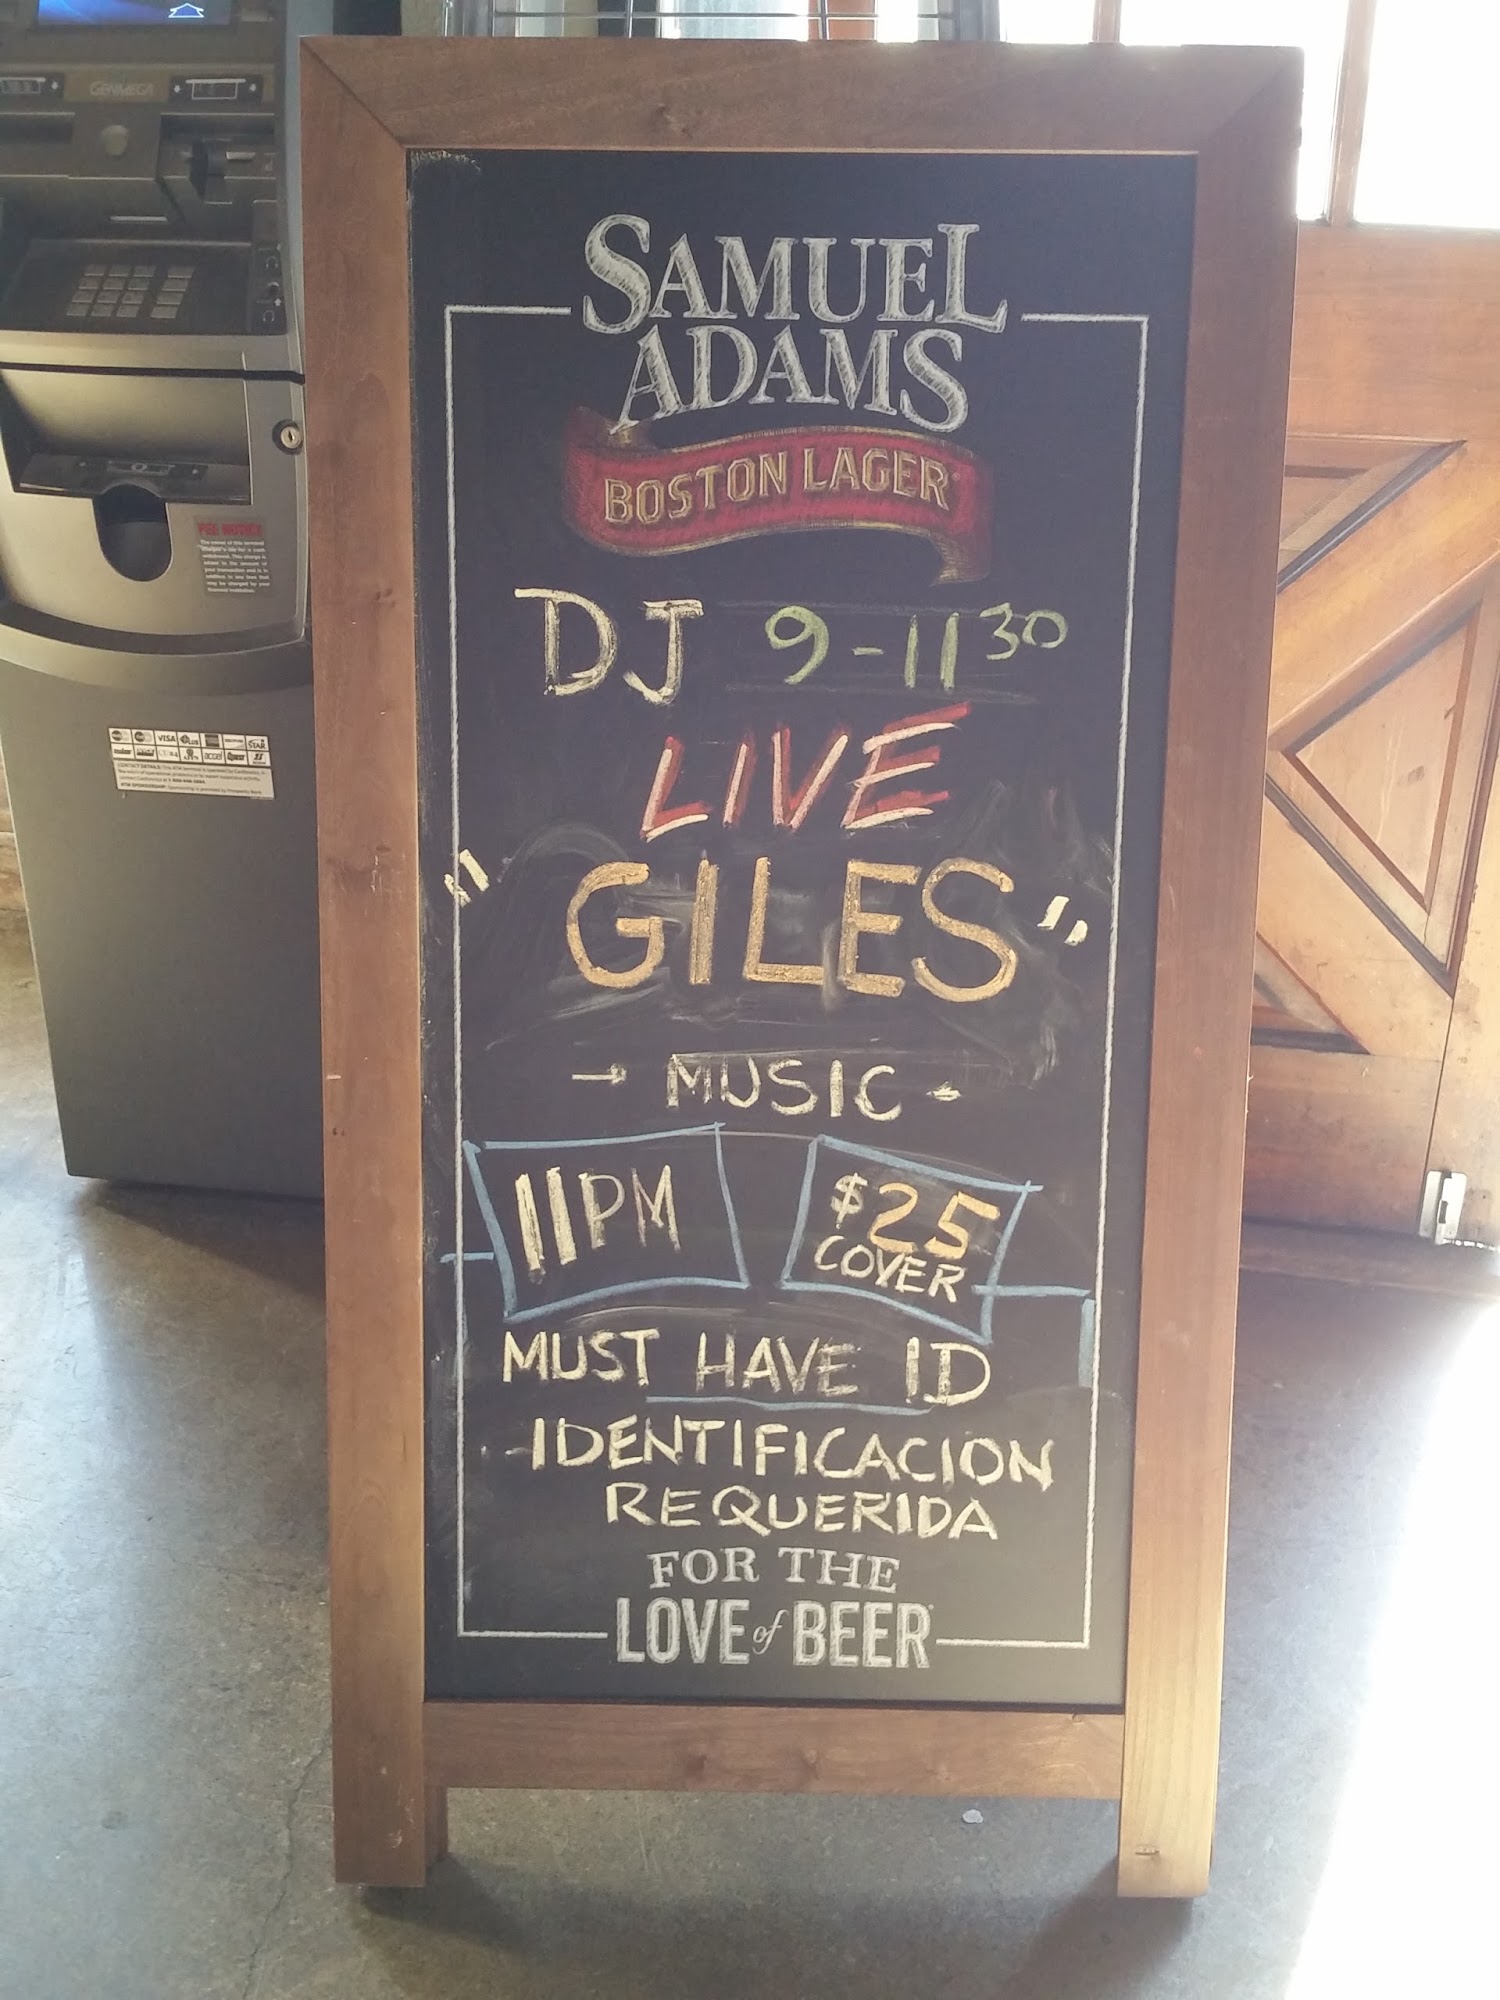 GENMEGA
SAMUEL
ADAMS
BOSTON LAGER
DJ 9-11 30
LIVE
"GILES"
→ MUSIC ←
11PM
$25
COVER
MUST HAVE ID
IDENTIFICACION
REQUERIDA
FOR THE
LOVE of BEER
FEE NOTICE
VISA
PLUS
STAR